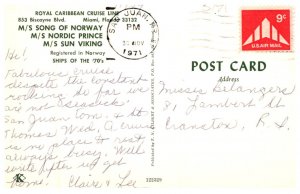 ROYAL CARIBBEAN CRUISE LINE
853 Biscayne Blvd. Miami, Florida 33132
M/S SONG OF NORWAY
M/S NORDIC PRINCE
M/S SUN VIKING
Registered in Norway
SHIPS OF THE '70's
SAN JUAN, P.R.
NOV
1971
9c
U.S. AIR MAIL
POST CARD
Address
Hi!
Fabulous cruise
despite the constant
rocking so far we are
not seasick.
San Juan tom. & St
Thomas Wed. A cruise
is no place to rest
always busy. Will
write after we get
home. Claire & Lee
Misses Belangers
31 Lambert St
Cranston, R.I.